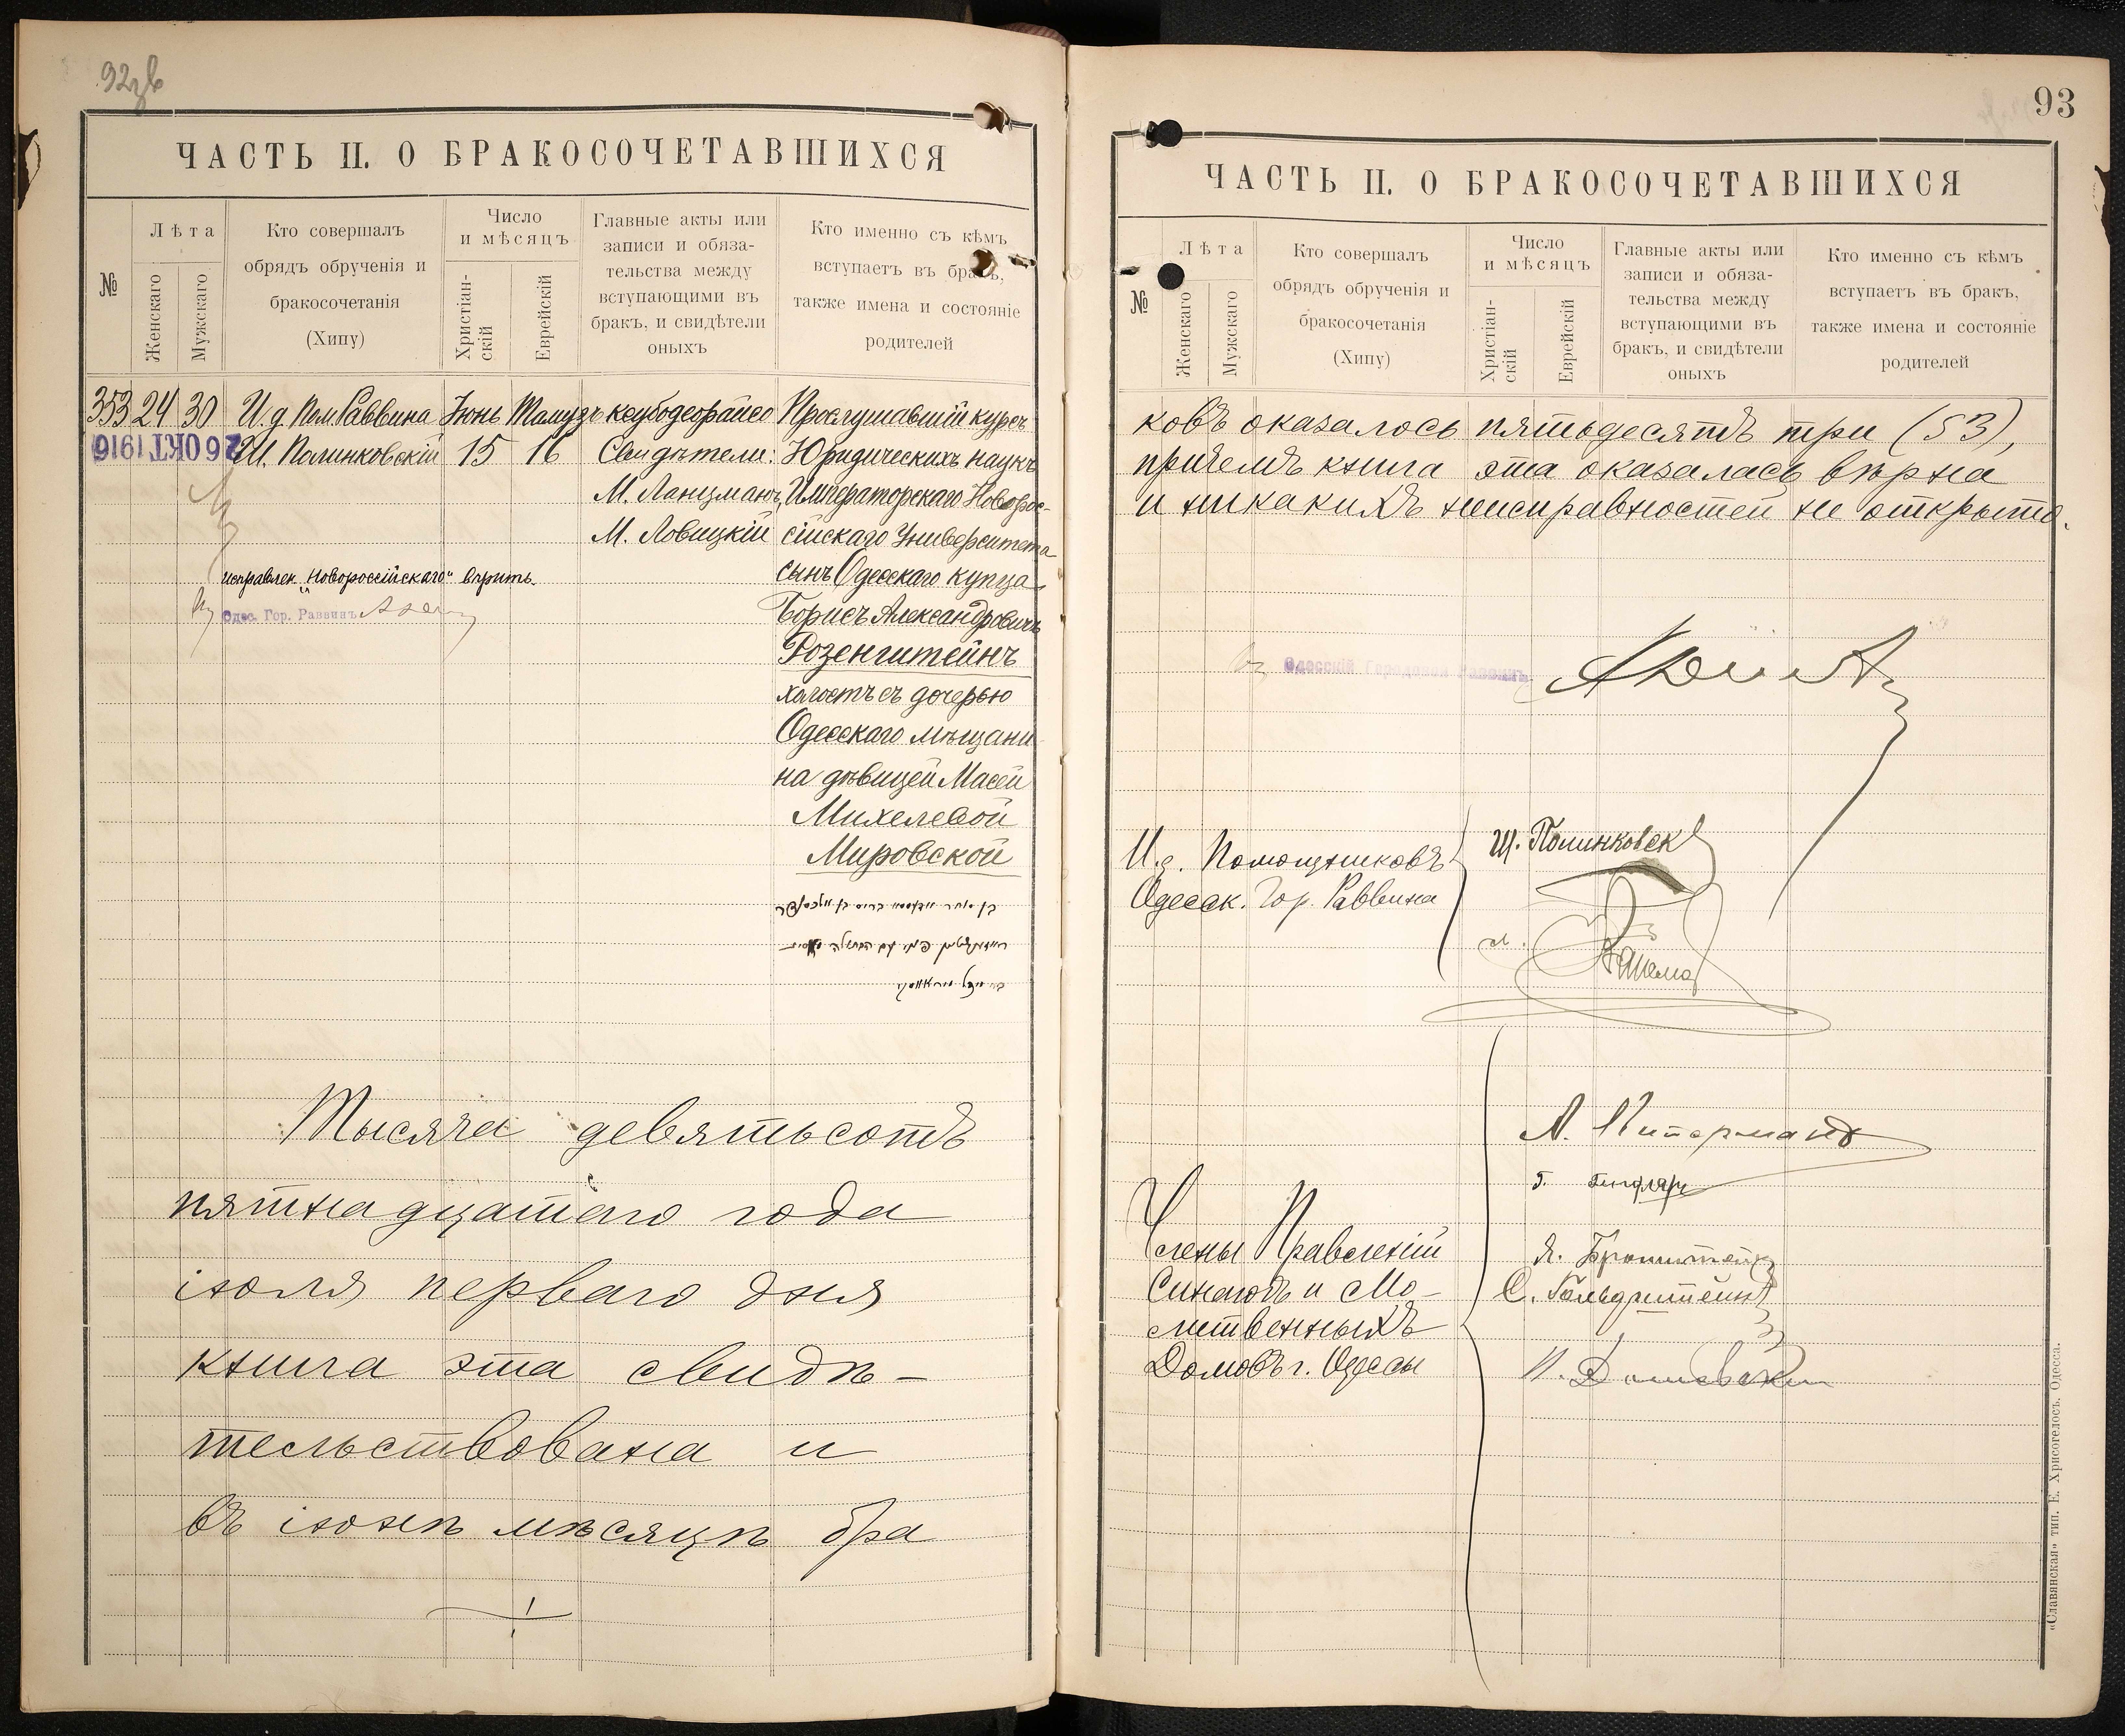 92
ЧАСТЬ II. О БРАКОСОЧЕТАВШИХСЯ
№
Лѣта
Женскаго
Мужскаго
Кто совершалъ
обрядъ обрученія и
бракосочетанія
(Хипу)
Число
и мѣсяцъ
Христіан-
скій
Еврейскій
Главные акты или
записи и обяза-
тельства между
вступающими въ
бракъ, и свидѣтели
оныхъ
Кто именно съ кѣмъ
вступаетъ въ бракъ,
также имена и состояніе
родителей
353 24 30 И. д. Пом. Раввина Іюнь Тамузъ Прослушавшій курсъ
26 ОКТ 1916 Ш. Полинковскій 15 16 Свидѣтели: Юридическихъ наукъ
М. Ланцманъ, Императорскаго Новорос-
М. Ловицкій сійскаго Университета
исправлен. „Новороссійскаго" вѣрить. сынъ Одесскаго купца
Одес. Гор. Раввинъ Борисъ Александровичъ
Розенштейнъ
холостъ съ дочерью
Одесскаго мѣщани
на дѣвицей Масей
Михелевой
Мировской
Тысяча девятьсотъ
пятнадцатаго года
іюля перваго дня
книга эта свидѣ-
тельствована и
въ іюнѣ мѣсяцѣ бра
93
ЧАСТЬ II. О БРАКОСОЧЕТАВШИХСЯ
№
Лѣта
Женскаго
Мужскаго
Кто совершалъ
обрядъ обрученія и
бракосочетанія
(Хипу)
Число
и мѣсяцъ
Христіан-
скій
Еврейскій
Главные акты или
записи и обяза-
тельства между
вступающими въ
бракъ, и свидѣтели
оныхъ
Кто именно съ кѣмъ
вступаетъ въ бракъ,
также имена и состояніе
родителей
ковъ оказалось пятьдесятъ три (53),
причемъ книга эта оказалась вѣрна
и никакихъ неисправностей не открыто.
Одесскій Городовой Раввинъ
И. д. Помощниковъ Ш. Полинковск
Одесск. Гор. Раввина
А. Питерманъ
Члены Правленій Я. Бронштейн
Синагогъ и Мо- С. Гольдштейнъ
литвенныхъ
Домовъ г. Одессы
«Славянская» тип. Е. Хрисогелосъ. Одесса.